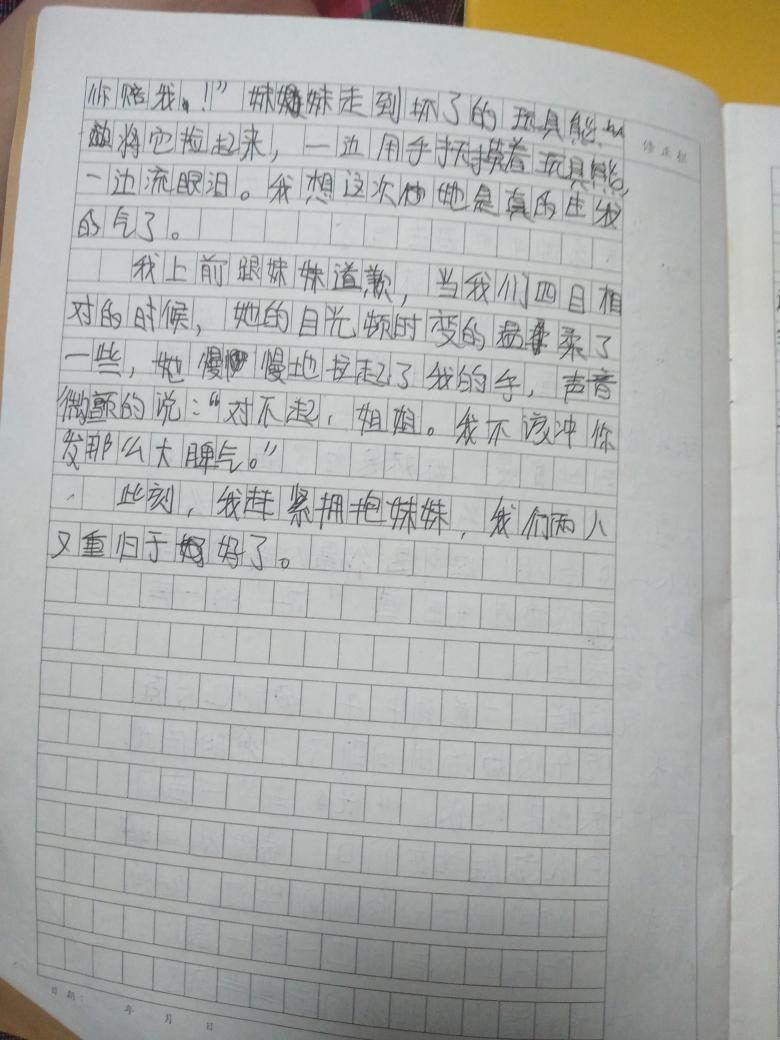 你赔我！”妹妹走到坏了的玩具熊
将它捡起来，一边用手抚摸着玩具熊，
一边流眼泪。我想这次她是真的生我
的气了。
我上前跟妹妹道歉，当我们四目相
对的时候，她的目光顿时变的温柔了
一些，她慢慢地拉起了我的手，声音
微颤的说：“对不起，姐姐。我不该冲你
发那么大脾气。”
此刻，我赶紧拥抱妹妹，我们两人
又重归于好了。
日期： 年 月 日